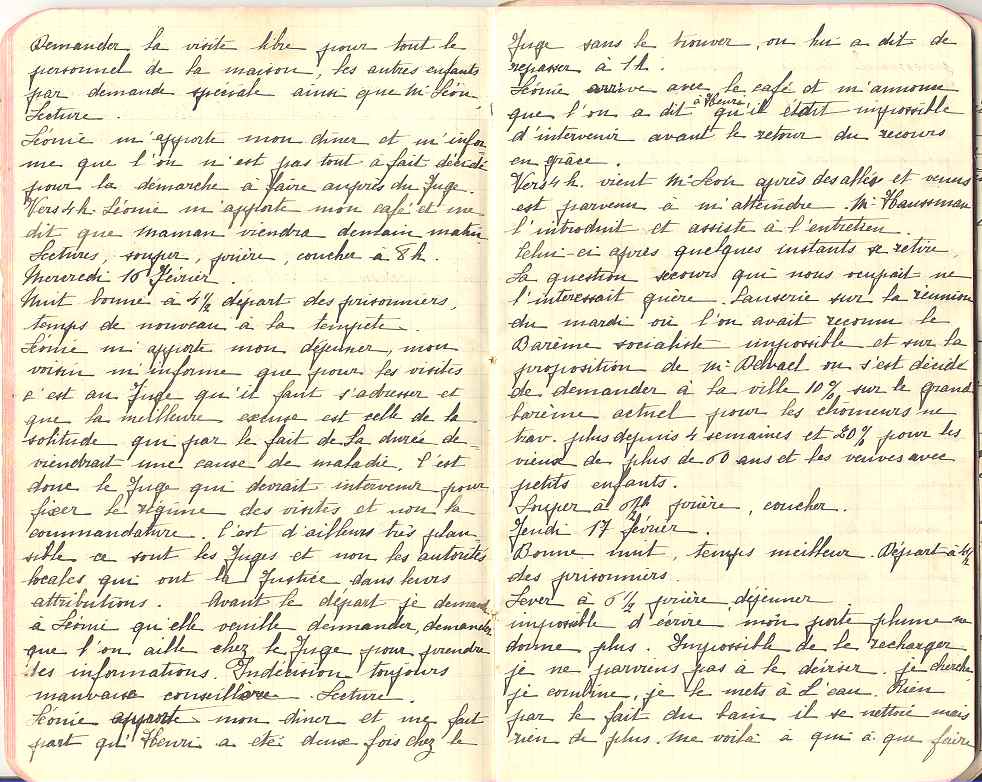 Demander la visite libre pour tout le
personnel de la maison, les autres enfants
par demande spéciale ainsi que Mr Léon.
Lecture.
Léonie m'apporte mon diner et m'infor-
me que l'on n'est pas tout à fait décidé
pour la démarche à faire auprès du Juge.
Vers 4h. Léonie m'apporte mon café et me
dit que maman viendra demain matin
Lectures, souper, prière, coucher à 8h.
Mercredi 16 février.
Nuit bonne à 4½ départ des prisonniers,
temps de nouveau à la tempête.
Léonie m'apporte mon déjeuner, mon
voisin m'informe que pour les visites
c'est au Juge qu'il faut s'adresser et
que la meilleure excuse est celle de la
solitude qui par le fait de sa durée de-
viendrait une cause de maladie. C'est
donc le Juge qui devrait intervenir pour
fixer le régime des visites et non la
commandature. C'est d'ailleurs très plau-
sible ce sont les Juges et non les autorités
locales qui ont la Justice dans leurs
attributions. Avant le départ je demande
à Léonie qu'elle veuille demander, demander
que l'on aille chez le Juge pour prendre
des informations. Indécision toujours
mauvaise conseillère. Lecture.
Léonie apporte mon diner et me fait
part qu'Henri a eté deux fois chez le
Juge sans le trouver, on lui a dit de
repasser à 1h.
Léonie arrive avec le café et m'annonce
que l'on a dit à Henri qu'il était impossible
d'intervenir avant le retour du recours
en grâce.
Vers 4h. vient Mr Léon après des allées et venues
est parvenu à m'atteindre. Mr Haussman
l'introduit et assiste à l'entretien.
Celui-ci après quelques instants se retire.
La question secours qui nous occupait ne
l'interessait guère. Causerie sur la réunion
du mardi où l'on avait reconnu le
Barème socialiste impossible et sur la
proposition de Mr on s'est décidé
de demander à la ville 10% sur le grand
barème actuel pour les chômeurs ne
trav. plus depuis 4 semaines et 20% pour les
vieux de plus de 60 ans et les veuves avec
petits enfants.
Souper à 6½h prière, coucher.
Jeudi 17 février.
Bonne nuit, temps meilleur. Départ à 4½
des prisonniers.
Lever à 6½ prière, déjeuner
impossible d'écrire mon porte plume ne
donne plus. Impossible de le recharger
je ne parviens pas à le déviser. je cherche
je combine, je le mets à l'eau. Rien
par le fait du bain il se nettoie mais
rien de plus. Me voilà à quia que faire